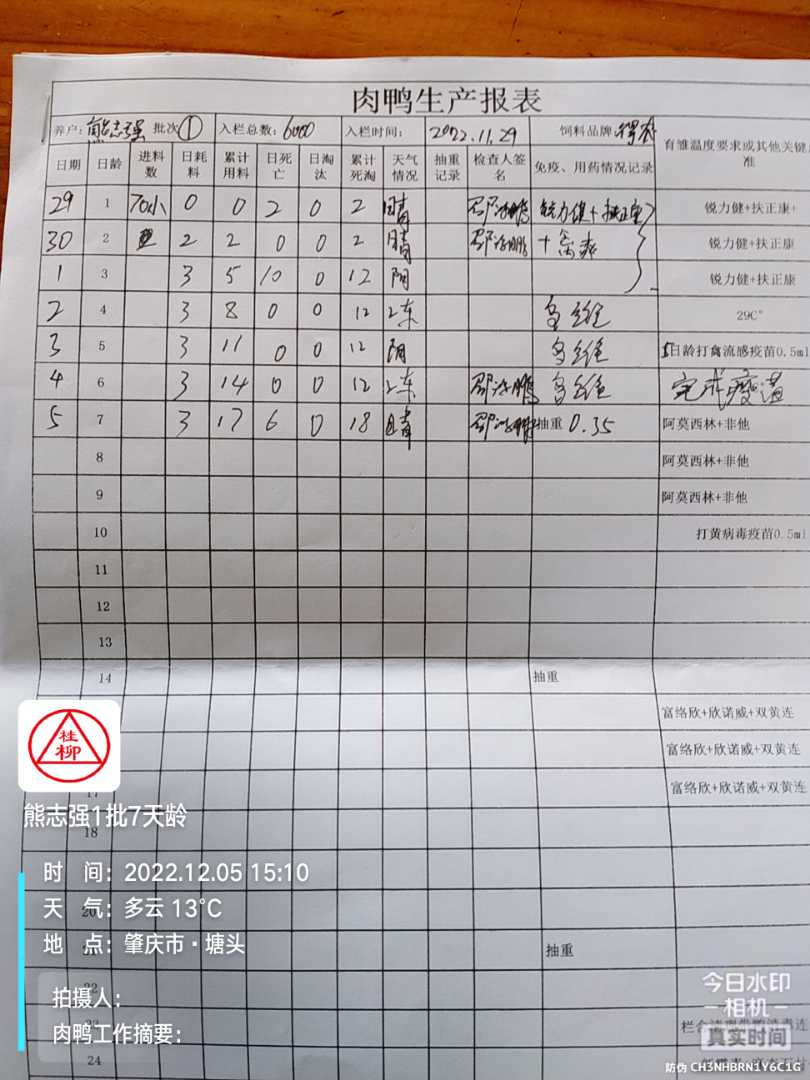 肉鸭生产报表
养户：熊志强 批次① 入栏总数：6000 入栏时间： 2022.11.29 饲料品牌
日期 日龄 进料数 日耗料 累计用料 日死亡 日淘汰 累计死淘 天气情况 抽重记录 检查人签名 免疫、用药情况记录 育雏温度要求或其他关键
准
29 1 70小 0 0 2 0 2 晴 锐力健+扶正康 锐力健+扶正康+
30 2 2 2 0 0 2 晴 + 锐力健+扶正康
1 3 3 5 10 0 12 阴 锐力健+扶正康
2 4 3 8 0 0 12 29C°
3 5 3 11 0 0 12 阴 5日龄打禽流感疫苗0.5ml
4 6 3 14 0 0 12 完成疫苗
5 7 3 17 6 0 18 晴 抽重 0.35 阿莫西林+非他
8 阿莫西林+非他
9 阿莫西林+非他
10 打黄病毒疫苗0.5ml
11
12
13
14 抽重
富络欣+欣诺威+双黄连
富络欣+欣诺威+双黄连
17 富络欣+欣诺威+双黄连
18
20
抽重
22
23
24
桂柳
熊志强1批7天龄
时 间：2022.12.05 15:10
天 气：多云 13℃
地 点：肇庆市·塘头
拍摄人：
肉鸭工作摘要：
今日水印
相机
真实时间
防伪 CH3NHBRN1Y6C1G